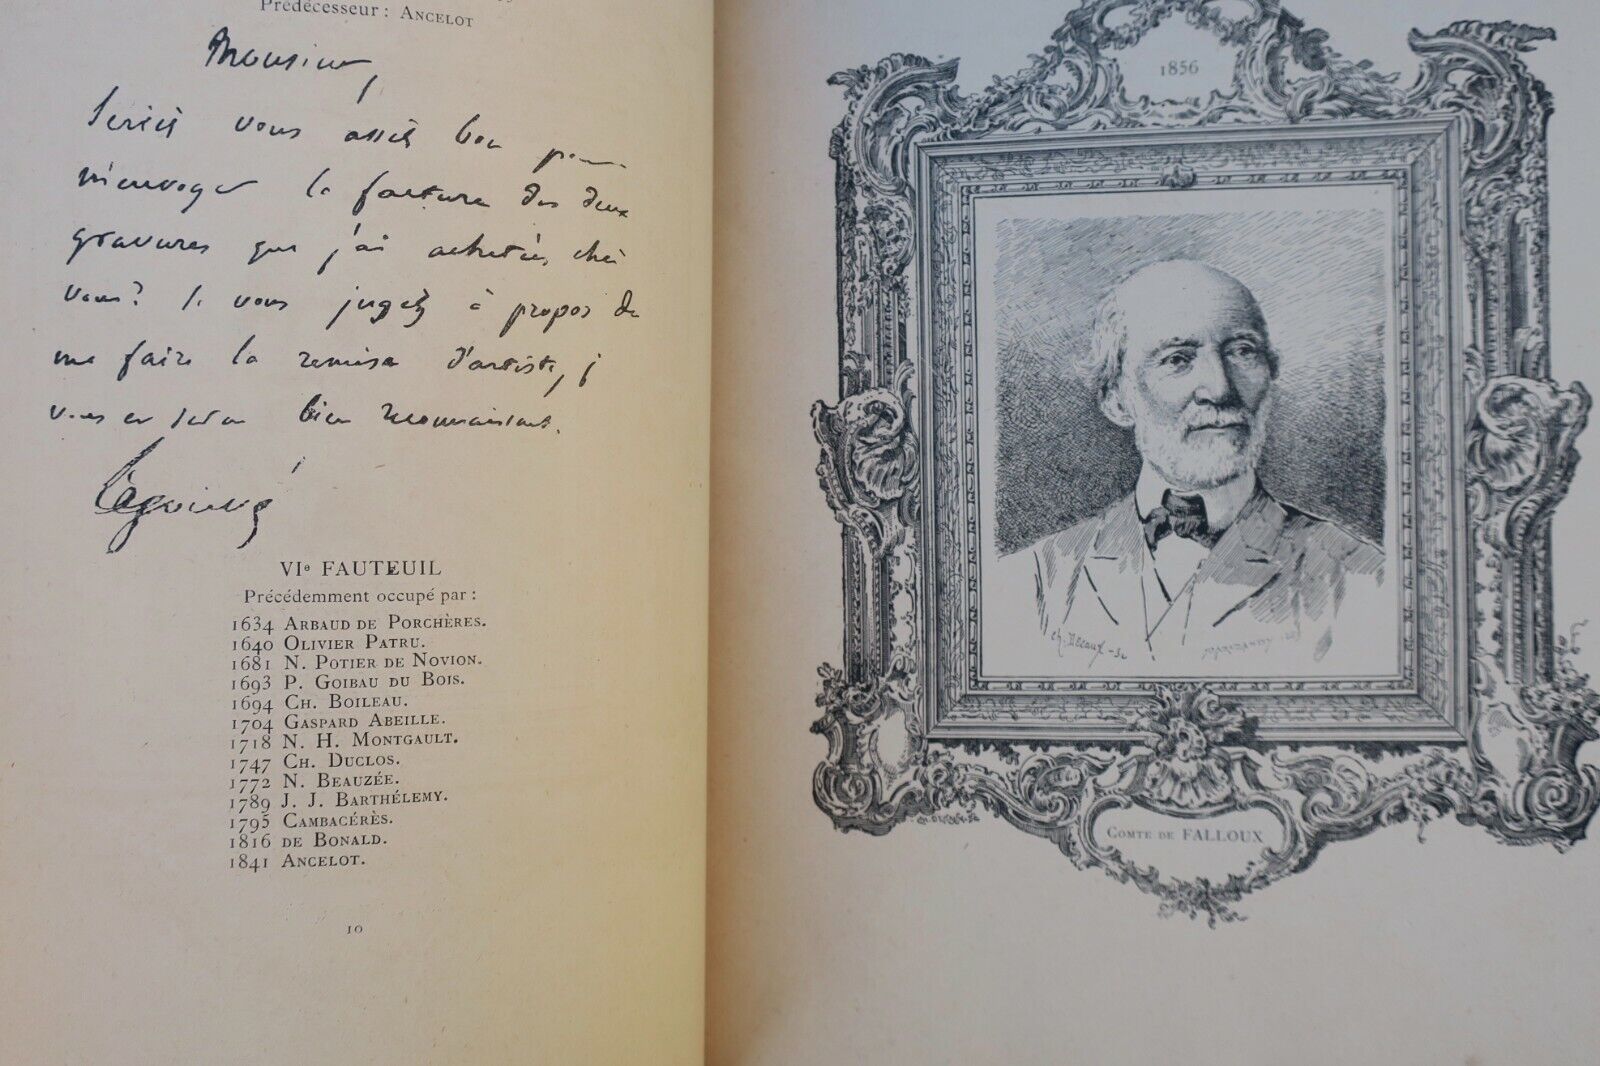 Prédécesseur : ANCELOT
Monsieur,
Seriés vous assés bon pour
m'envoyer la facture des deux
gravures que j'ai achetées chés
vous? Si vous jugés à propos de
me faire la remise d'artiste, je
vous en serai bien reconnaissant.
VIe FAUTEUIL
Précédemment occupé par :
1634 ARBAUD DE PORCHÈRES.
1640 OLIVIER PATRU.
1681 N. POTIER DE NOVION.
1693 P. GOIBAU DU BOIS.
1694 CH. BOILEAU.
1704 GASPARD ABEILLE.
1718 N. H. MONTGAULT.
1747 CH. DUCLOS.
1772 N. BEAUZÉE.
1789 J. J. BARTHÉLEMY.
1795 CAMBACÉRÈS.
1816 DE BONALD.
1841 ANCELOT.
10
1856
Ch. Decaux - Sc
COMTE DE FALLOUX